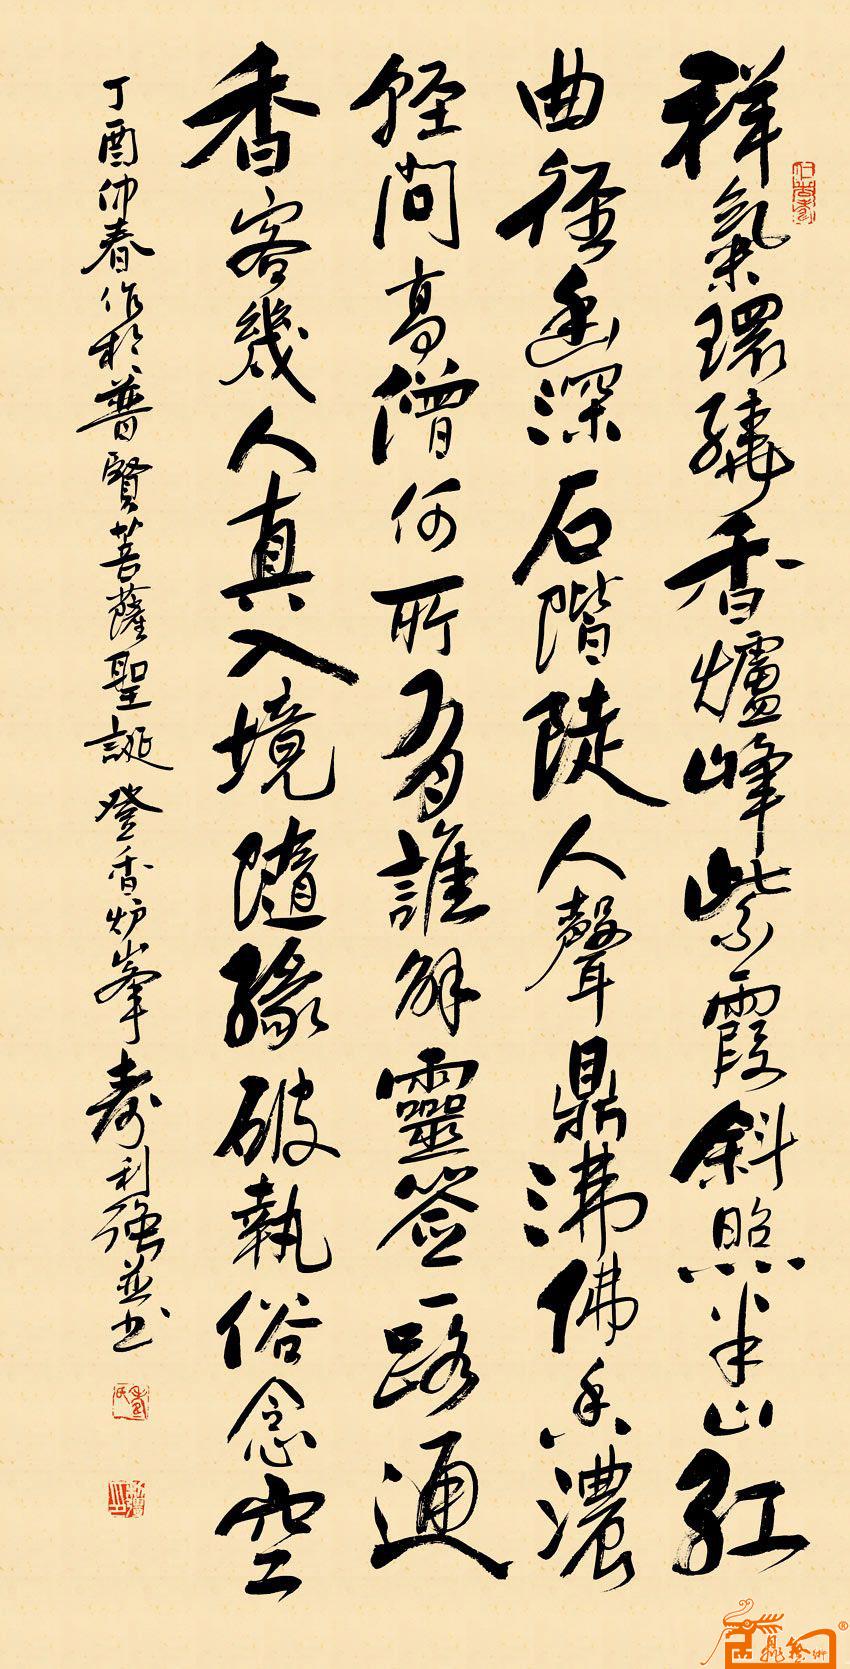 祥氣環繞香爐峰紫霞斜照半山紅
曲徑幽深石階陡人聲鼎沸佛香濃
輕問高僧何所有誰解靈签一路通
香客幾人真入境隨緣破執俗念空
丁酉仲春作於普賢菩薩聖誕登香炉峯壽利強並书